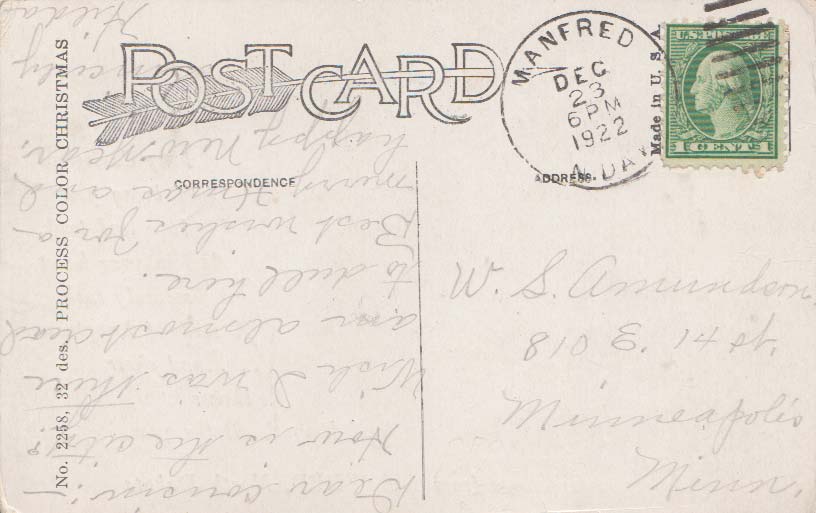 POST CARD
CORRESPONDENCE
ADDRESS.
No. 2258, 32 des. PROCESS COLOR CHRISTMAS
Made in U. S. A.
MANFRED
DEC
23
6 PM
1922
N. DAK
U.S. POSTAGE
1 CENTS 1
W. S. Amundson
810 E. 14 St.
Minneapolis
Minn.
Dear cousin:-
How is the city?
Wish I was there
am almost dead
to dull here.
Best wishes for a
merry Xmas and
happy New Year.
Sincerely
Hilda